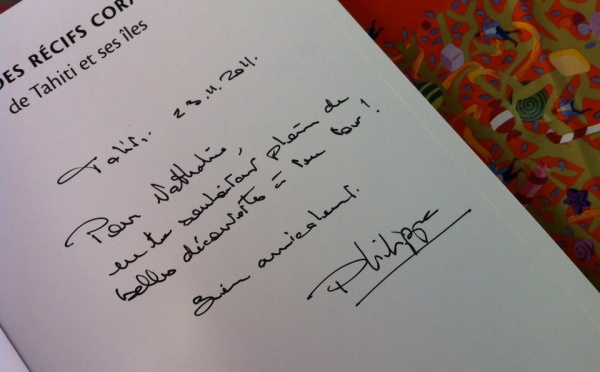 DES RÉCIFS CORA
de Tahiti et ses îles
Tahiti. 23.11.2011.
Pour Nathalie,
en te souhaitant plein de
belles découvertes à ton tour !
Bien amicalement.
Philippe